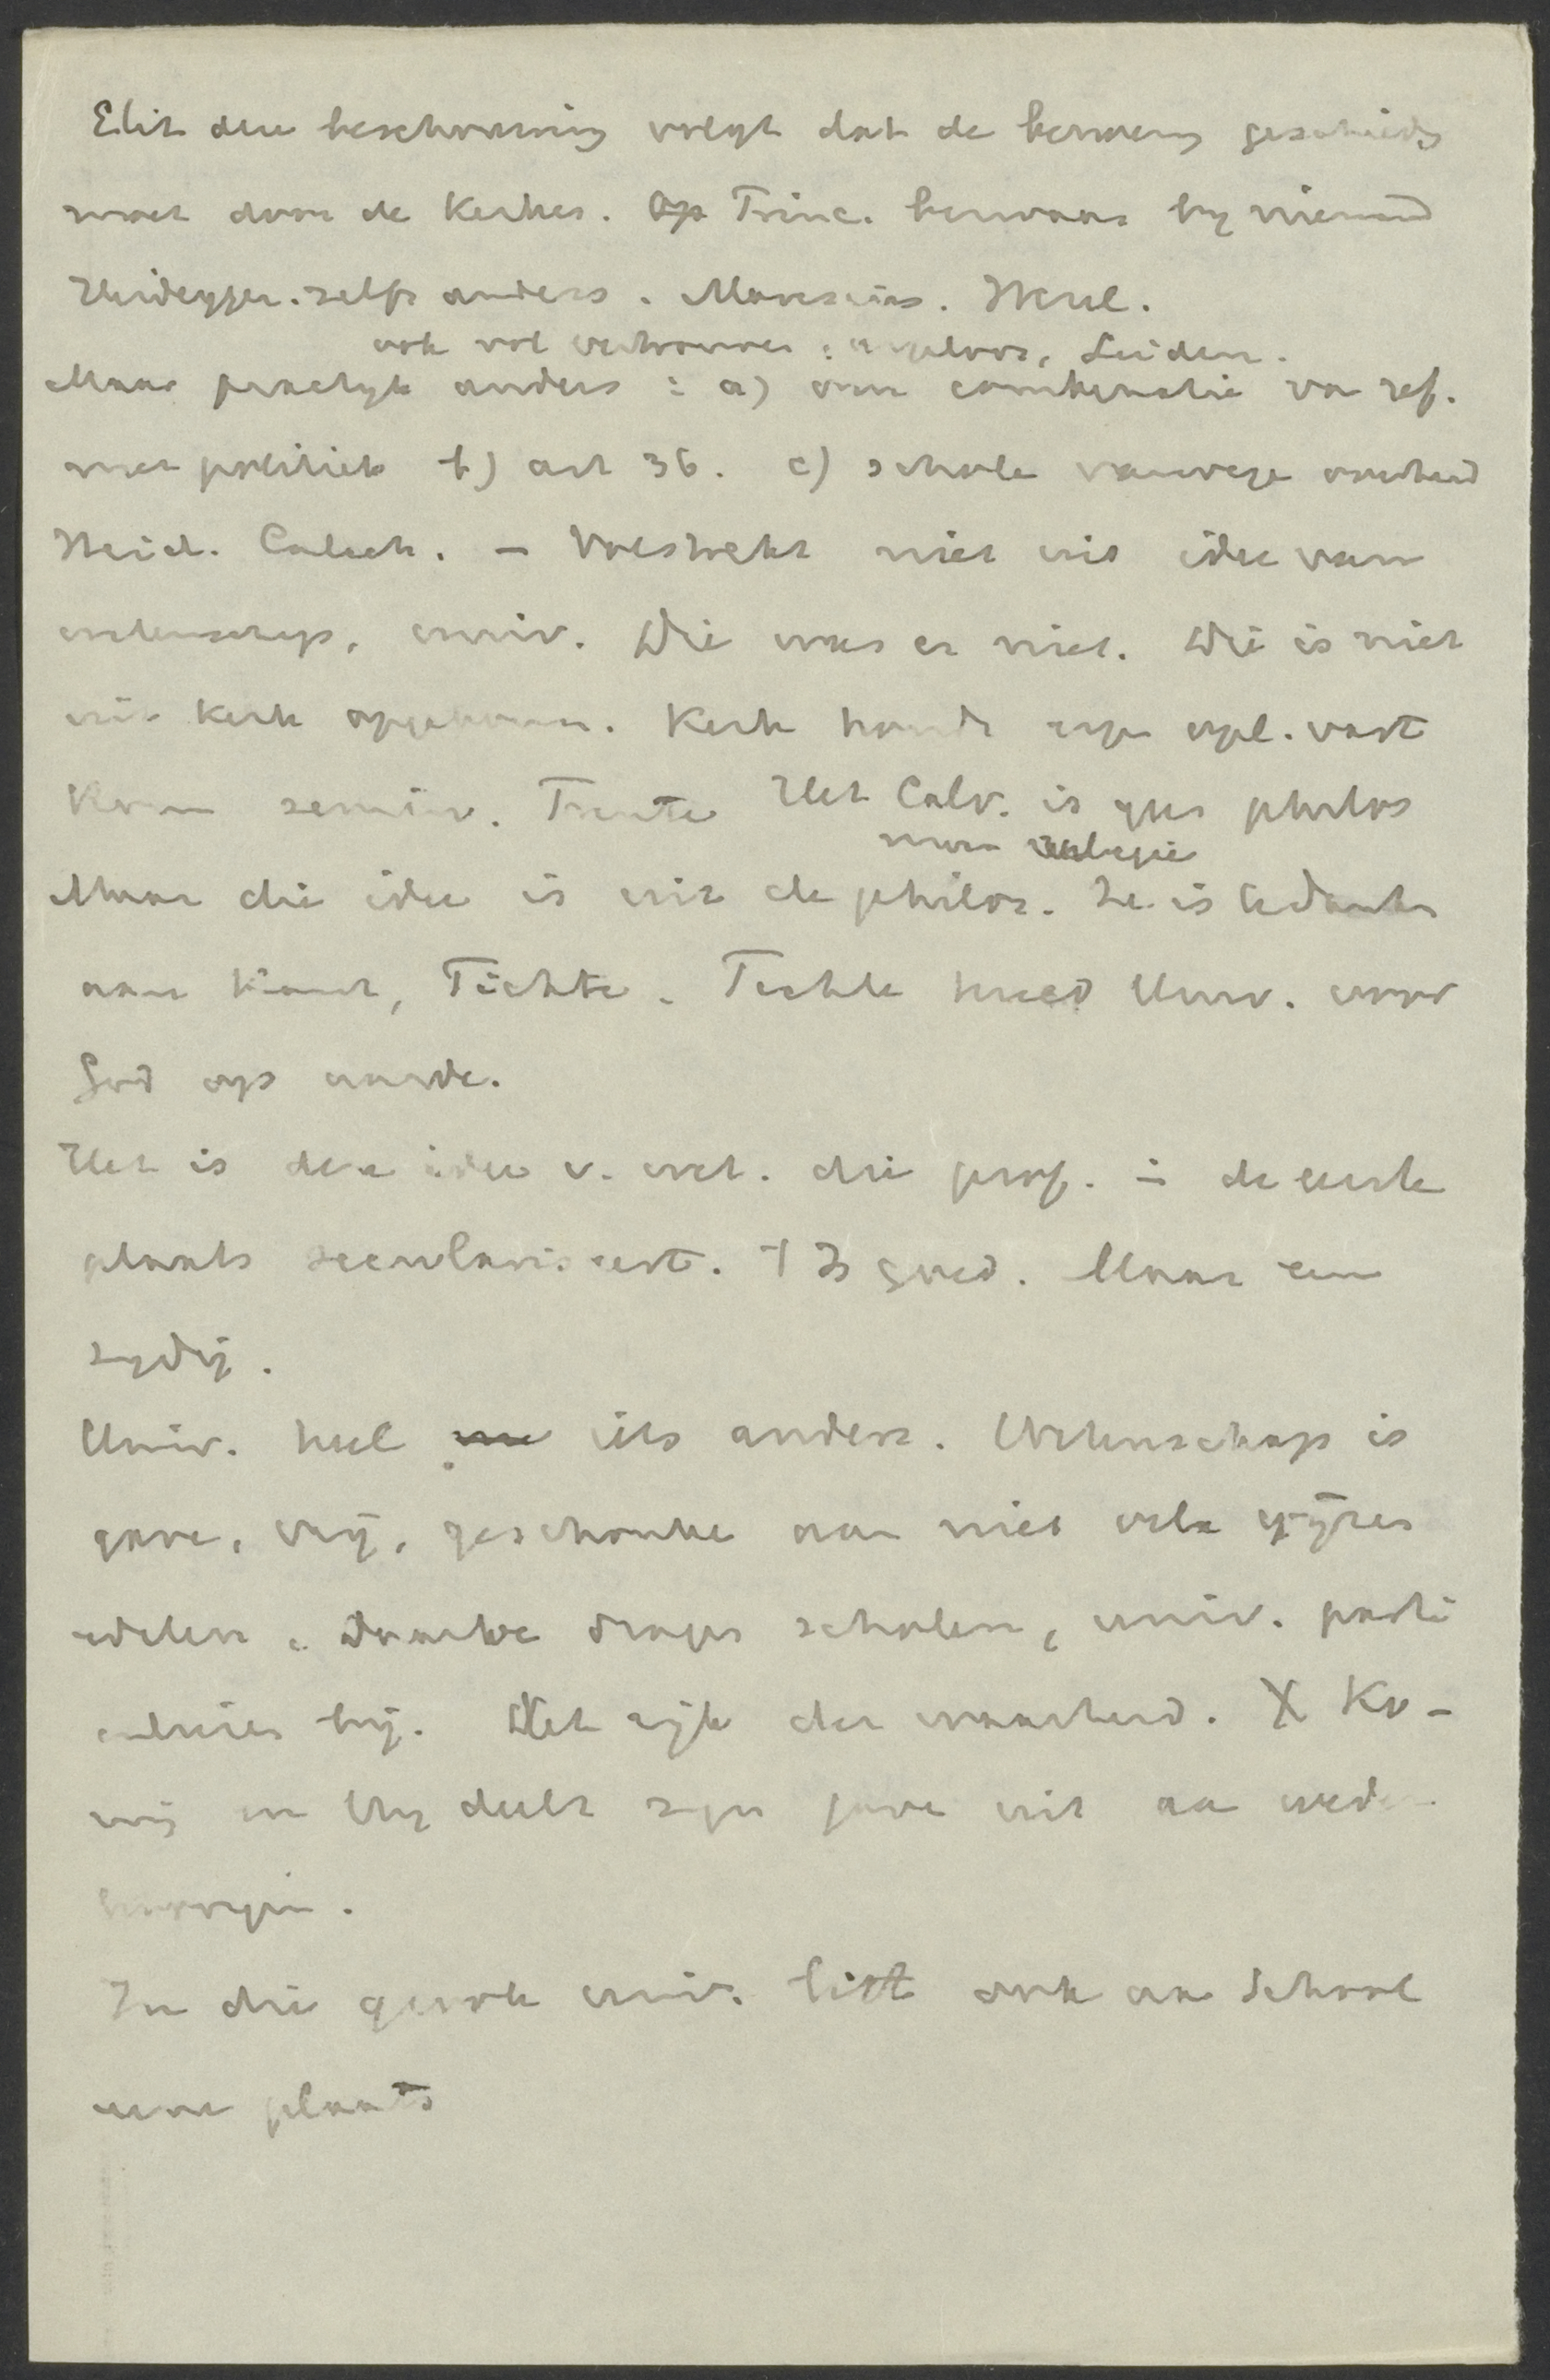 Uit deze beschouwing volgt dat de benoeming geschieden
moet door de Kerken. Op Princ. bezwaar bij niemand
Heidegger. zelfs anders. Maresius.
ook vol vertrouwen: argeloos, Leiden.
Maar practijk anders: a) om combinatie van ref.
met politiek b) art 36. c) schole vanwege overheid
Heid. Volstrekt niet uit idee van
wetenschap, univ. Die was er niet. Die is niet
uit kerk opgekomen. Kerk houdt eigen opl. vast
Rome semin. Trente Het Calv. is geen philos
maar
Maar die idee is uit de philos. Ze is te danken
aan Kant, Fichte. Fichte hield Univ. voor
God op aarde.
Het is deze idee v. wet. die prof. in de eerste
plaats seculariseert. Is goed. Maar een
zydig.
Univ. heel iets anders. Wetenschap is
gave, vrij, geschonke aan niet vele
edelen. Daartoe dragen scholen, univ. parti
culieren bij. Het rijk der waarheid. X Ko-
nig en Hij deelt zijn gave uit aan

In die univ. ook onze School
eene plaats